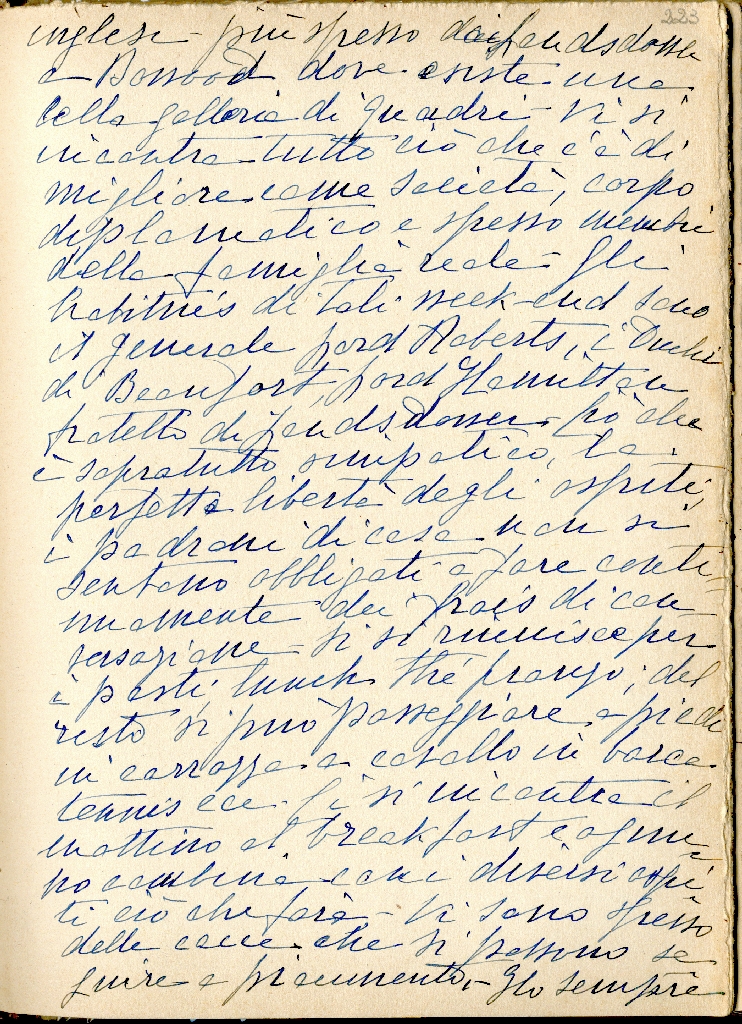 223
inglesi - più spesso dai Landsdowne
a Bowood dove esiste una
bella galleria di quadri - Vi si
incontra tutto ciò che c'è di
migliore come società, corpo
diplomatico e spesso membri
della famiglia reale - Gli
habitués di tali week-end sono
il generale Lord Roberts, i Duchi
di Beaufort, Lord Hamilton
fratello di Landsdowne - Ciò che
è sopratutto simpatico, la
perfetta libertà degli ospiti,
i padroni di casa non si
sentono obbligati a fare conti-
nuamente dei frais di con-
versazione - Si si riunisce per
i pasti, lunch thé pranzo; del
resto si può passeggiare a piedi
in carrozza a cavallo in barca
tennis ecc. Ci si incontra il
mattino al breakfast e ognu-
no combina con i diversi ospi-
ti ciò che farà - Vi sono spesso
delle cacce che si possono se-
guire a piacimento, - Ho sempre